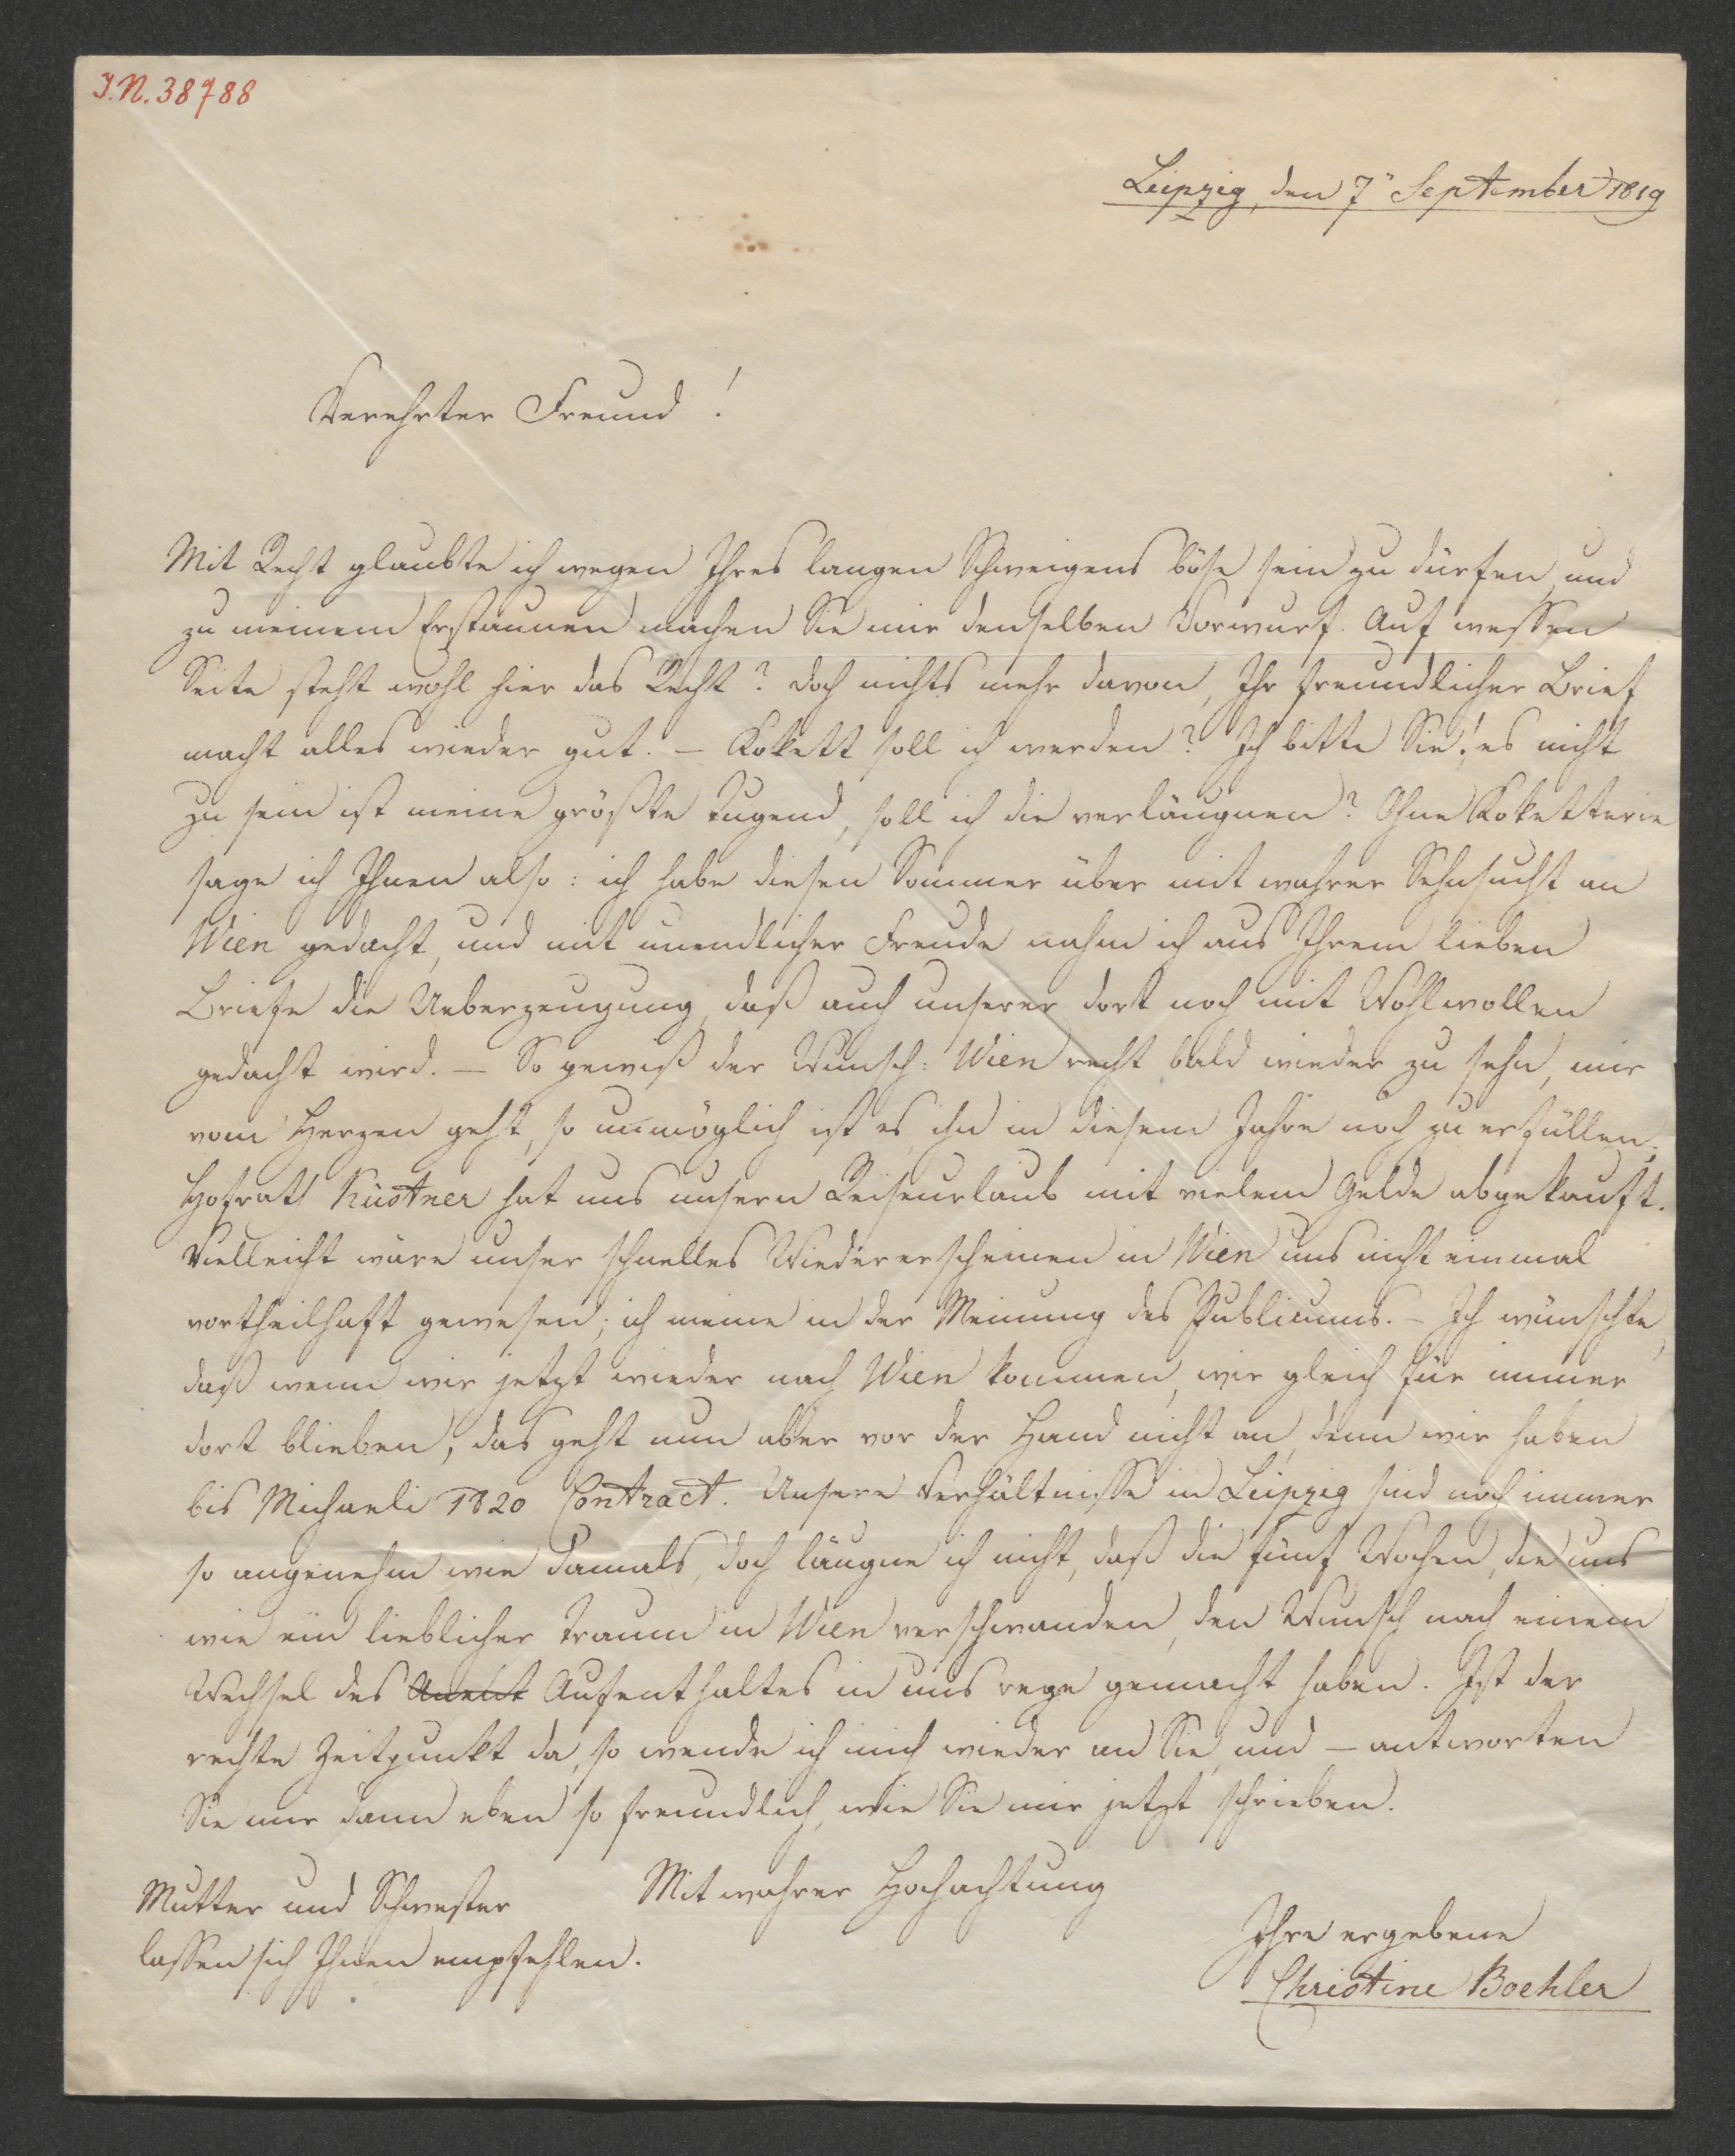 I.N. 38788
Leipzig, den 7" September 1819
Verehrter Freund!
Mit Recht glaubte ich wegen Ihres langen Schweigens böse sein zu dürfen, und
zu meinem Erstaunen machen Sie mir denselben Vorwurf. Auf wessen
Seite steht wohl hier das Recht? doch nichts mehr davon, Ihr freundlicher Brief
macht alles wieder gut. – Kokett soll ich werden? Ich bitte Sie! es nicht
zu sein ist meine größte Tugend, soll ich die verläugnen? Ohne Koketterie
sage ich Ihnen also: ich habe diesen Sommer über mit wahrer Sehnsucht an
Wien gedacht, und mit unendlicher Freude nahm ich aus Ihrem lieben
Briefe die Ueberzeugung, daß auch unserer dort noch mit Wohlwollen
gedacht wird. – So gewiß der Wunsch: Wien recht bald wieder zu sehn, mir
vom Herzen geht, so unmöglich ist es ihn in diesem Jahre noch zu erfüllen;
Hofrath Küstner hat uns unsern Reiseurlaub mit vielem Gelde abgekauft.
Vielleicht wäre unser schnelles Wiedererscheinen in Wien uns nicht einmal
vortheilhaft gewesen; ich meine in der Meinung des Publicums. – Ich wünschte,
daß wenn wir jetzt wieder nach Wien kommen, wir gleich für immer
dort blieben, das geht nun aber vor der Hand nicht an, denn wir haben
bis Michaeli 1820 Contract. Unsere Verhältnisse in Leipzig sind noch immer
so angenehm wie damals, doch läugne ich nicht, daß die fünf Wochen, die uns
wie ein lieblicher Traum in Wien verschwanden, den Wunsch nach einem
Wechsel des Aufenthaltes in uns rege gemacht haben. Ist der
rechte Zeitpunkt da, so wende ich mich wieder an Sie, und – antworten
Sie mir dann eben so freundlich, wie Sie mir jetzt schrieben.
Mit wahrer Hochachtung
Ihre ergebene
Christine Boehler
Mutter und Schwester
lassen sich Ihnen empfehlen.